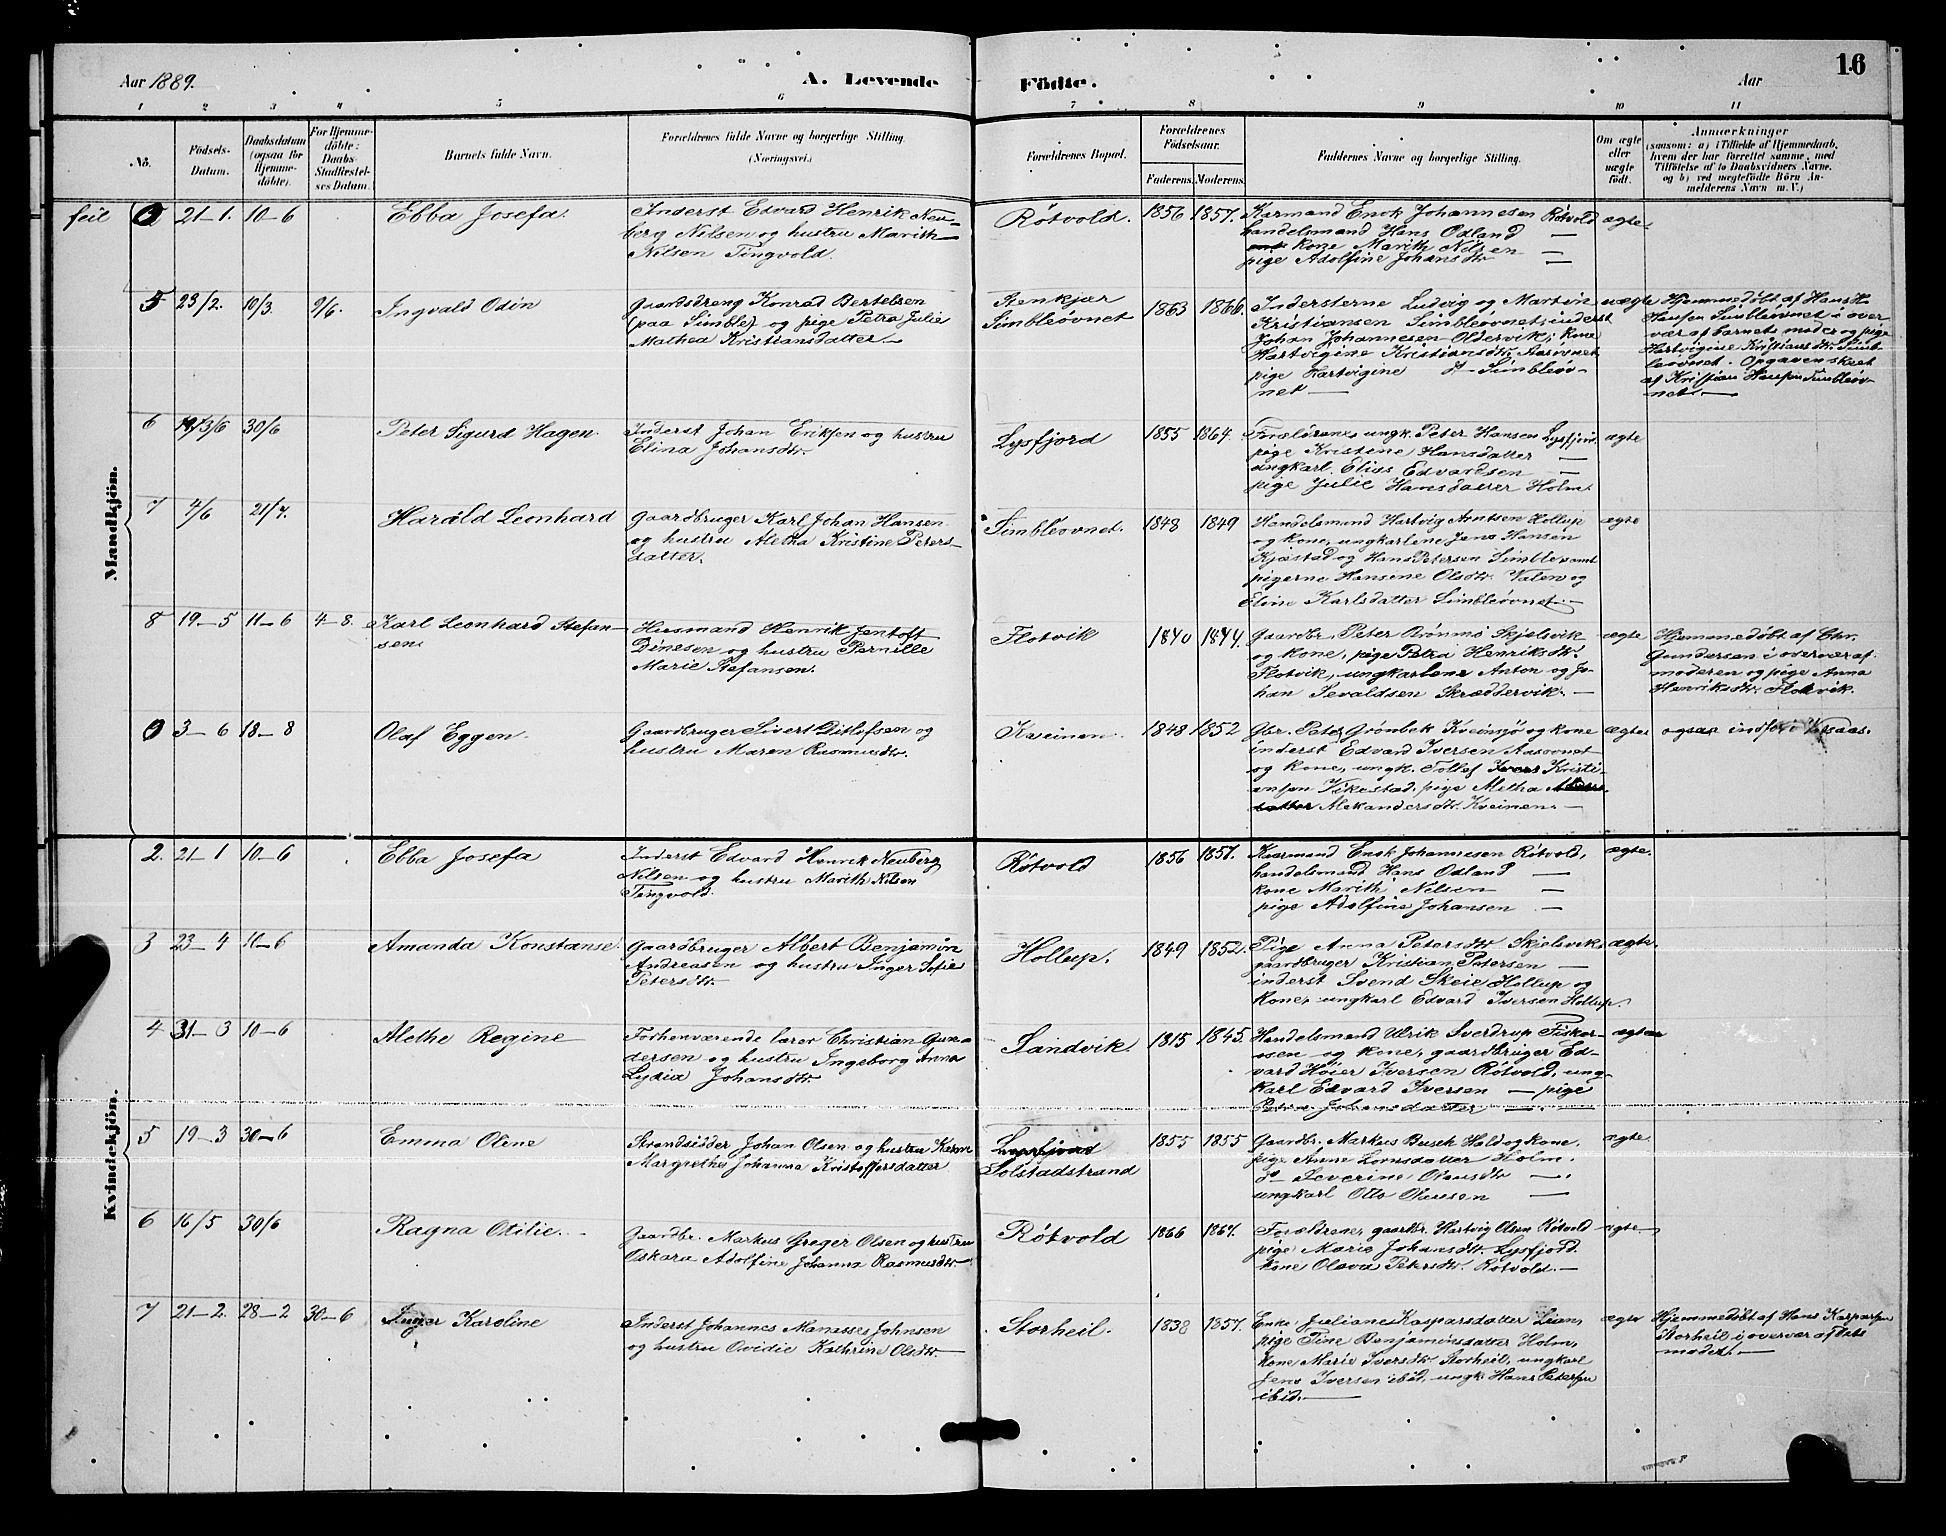 Aar 1889.
A. Levende
Födte.
Aar
16
1 2 3 4 5 6 7 8 9 10 11
No.
Födsels-
Datum.
Daabsdatum
(ogsaa for
Hjemme-
döbte).
For Hjemme-
döbte:
Daabs-
Stadfæstel-
ses Datum.
Barnets fulde Navn.
Forældrenes fulde Navne og borgerlige Stilling.
(Næringsvei.)
Forældrenes Bopæl.
Forældrenes
Födselsaar.
Faderens. Moderens.
Faddernes Navne og borgerlige Stilling.
Om ægte
eller
uægte
födt.
Anmærkninger
(saasom: a) i Tilfælde af Hjemmedaab,
hvem der har forrettet samme, med
Tilföielse af to Daabsvidners Navne,
og b) ved uægtefödte Börn An-
melderens Navn m. V.)
Mandkjön.
feil 0 21–1. 10–6 Ebba Josefa.
Inderst Edvard Henrik Neu-
berg Nilsen og hustru Marith
Nilsen Tingvold.
Røtvold. 1856 1857.
Karmand Enok Johannesen Røtvold
handelsmand Hans Odland —
kone Marith Nilsen —
pige Adolfine Johansdtr —
ægte.
5 23/2. 10/3. 9/6. Ingvald Odin
Gaardsdreng Konrad Bertelsen
(paa Simble) og pige Petra Julie
Mathea Kristiansdatter.
Simbleøvnet 1863 1866.
Indersterne Ludvig og Martin
Kristiansen Simbleøvnet, inderst
Johan Johannesen Oldervik; kone
Hartvigine Kristiansdtr. Aasovnet
pige Hartvigine d– Simbleøv-
net —
uægte
Hjemmedøbt af Hans H.
Hansen Simbleøvnet i over-
vær af barnets moder og pige
Hartvigine Kristiansdtr. Simb-
leovnet. Opgaven skeet
af Kristian Hansen Simbleøv-
net. —
6 13/6 30/6 Peter Sigurd Hagen.
Inderst Johan Eriksen og hustru
Elina Johansdtr.
Lysfjord 1855 1864.
Forældrene, ungk. Peter Hansen Lysfjord.
pige Kristine Hansdatter —
ungkarl. Elias Edvardsen —
pige Julie Hansdatter Holm.
ægte
7 4/6 21/7. Harald Leonhard
Gaardbruger Karl Johan Hansen
og hustru Aletha Kristine Peters-
datter.
Simbleovnet. 1848 1849
Handelsmand Hartvig Arntsen Hollup
og kone, ungkarlene Jens Hansen
Kjøstad og Hans Petersen Simble samt
pigerne Hansene Olsdtr. Valen og
Eline Karlsdatter Simbleøvnet. —
ægte
8 19–5 11–6 4–8. Karl Leonhard Stefan-
sen
Husmand Henrik Jentoft
Dinesen og hustru Pernille
Marie Stefansen.
Flotvik 1840 1844.
Gaardbr. Peter Brønmø Skjelsvik
og kone, pige Petra Henriksdtr.
Flotvik, ungkarlene Anton og Jo-
han Sevaldsen Skræddervik. —
ægte
Hjemmedøbt af Chr.
Gundersen i overvær af
moderen og pige Anna
Henriksdtr. Flotvik.
0 3–6 18–8 Olaf Eggen.
Gaardbruger Sivert Ditlefsen og
hustru Maren Rasmusdtr.
Kveinen. 1848 1852
Gbr. Peter Grønbek Kveinsjø og kone
inderst Edvard Iversen Aasovnet
og kone, ungk. Tollef Kristi-
ansen Vikestad, pige Aletha
Alexandersdtr. Kveinen. —
ægte
ogsaa indfør i
Kvindekjön.
2. 21–1 10–6 Ebba Josefa
Inderst Edvard Henrik Neuberg
Nilsen og hustru Marith Nilsen
Tingvold.
Røtvold 1856 1857.
Karmand Enok Johannesen Røtvold,
handelsmand Hans Odland —
kone Marith Nilsen —
pige Adolfine Johansen —
ægte.
3 23–4 11–6 Amanda Konstanse.
Gaardbruger Albert Benjamin
Andreasen og hustru Inger Sofie
Petersdtr.
Hollup. 1849 1852.
Pige Anna Petersdtr Skjelsvik,
gaardbruger Kristian Petersen —
inderst Svend Skeie Hollup og
kone, ungkarl Edvard Iversen Hollup.
ægte.
4 31–3 10–6 Alethe Regine
Forhenværende lærer Christian Gun-
dersen og hustru Ingeborg Anna
Lydia Johansdtr.
Sandvik. 1815 1845.
Handelsmand Ulrik Sverdrup Fisker-
osen og kone, gaardbruger Ed-
vard Høier Iversen Røtvold, ung-
karl Edvard Iversen — pige
Petra Johansdatter —
ægte
5 19–3 30–6 Emma Oline
Strandsidder Johan Olsen og hustru Karen
Margrethe Johanna Kristoffersdatter
Lysfjord
Solstadstrand
1855 1855
Gaardbr. Markus Busch Hald og kone.
pige Anne Lornsdatter Holm.
d– Severine Olausdtr —.
ungkarl Otto Olausen —
ægte.
6 16/5 30/6 Ragna Otilie.
Gaardbr. Markus Greger Olsen og hustru
Oskara Adolfine Johanna Rasmusdtr.
Røtvold 1866 1867.
Forældrene, gaardbr. Hartvig Olsen Røtvold
pige Marie Johansdtr. Lysfjord.
kone Olava Petersdtr. Røtvold. —
ægte.
7 21–2. 28–2 30–6 Inger Karoline
Inderst Johannes Manasses Johnsen
og hustru Ovidie Kathrine Olsdtr.
Storheil. 1838 1857.
Enke, Juliane Kaspersdatter Lian,
pige Tine Benjaminsdatter Holm,
kone Marie Iversdtr. Storheil, ungkarl
Jens Iversen ibid, ungk. Hans Petersen
ibid. —
ægte
Hjemmedøbt af Hans Kaspersen
Storheil i overvær af dets
moder. —